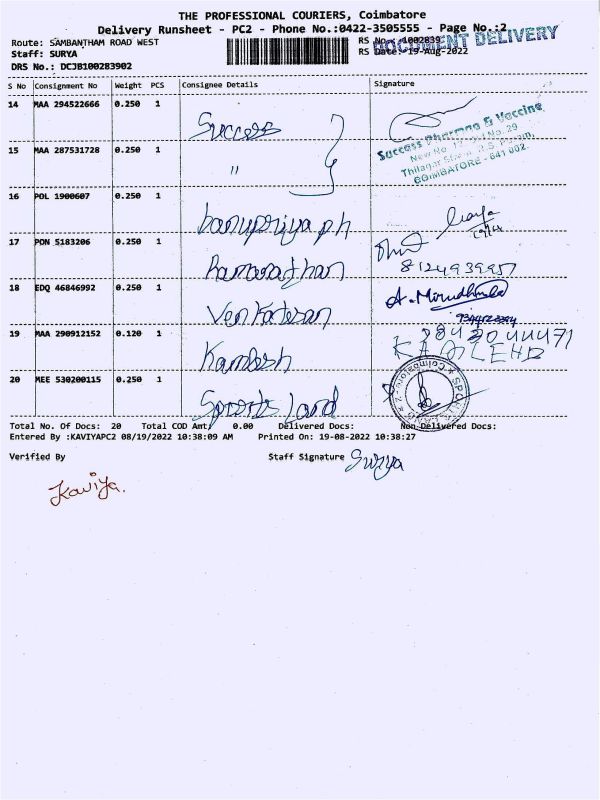 THE PROFESSIONAL COURIERS, Coimbatore
Delivery Runsheet - PC2 - Phone No.:0422-3505555 - Page No.:2
Route: SAMBANTHAM ROAD WEST
RS No.: 1002839
DOCUMENT DELIVERY
Staff: SURYA
RS Date: 19-Aug-2022
DRS No.: DCJB100283902
S No Consignment No Weight PCS Consignee Details Signature
14 MAA 294522666 0.250 1 Success
Success Pharma & Vaccine
New No. 29
Thilagar Street, R.S. Puram,
COIMBATORE - 641 002.
15 MAA 287531728 0.250 1 "
16 POL 1900607 0.250 1 banupriya ph
17 PON 5183206 0.250 1 Ramanathan 8124939957
18 EDQ 46846992 0.250 1 Venkatesan A. Mirudhula
19 MAA 290912152 0.120 1 Kamlesh
KAMLEHD
20 MEE 530200115 0.250 1 Sports Land
Total No. Of Docs: 20 Total COD Amt: 0.00 Delivered Docs: Non Delivered Docs:
Entered By :KAVIYAPC2 08/19/2022 10:38:09 AM Printed On: 19-08-2022 10:38:27
Verified By Staff Signature Surya
Kaviya.